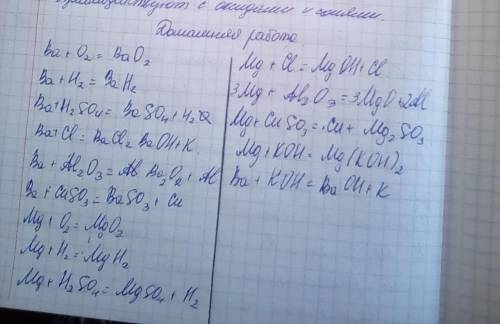 с оксидами и солями.
Домашняя работа
Ba + O2 = BaO2
Ba + H2 = BaH2
Ba + H2SO4 = BaSO4 + H2
Ba + Cl = BaCl2 BaOH + K
Ba + Al2O3 = Ba2O2 + Al
Ba + CuSO3 = BaSO3 + Cu
Mg + O2 = MgO2
Mg + H2 = MgH2
Mg + H2SO4 = MgSO4 + H2
Mg + Cl = MgOH + Cl
3Mg + Al2O3 = 3MgO + 2Al
Mg + CuSO3 = Cu + Mg2SO3
Mg + KOH = Mg(KOH)2
Ba + KOH = BaOH + K